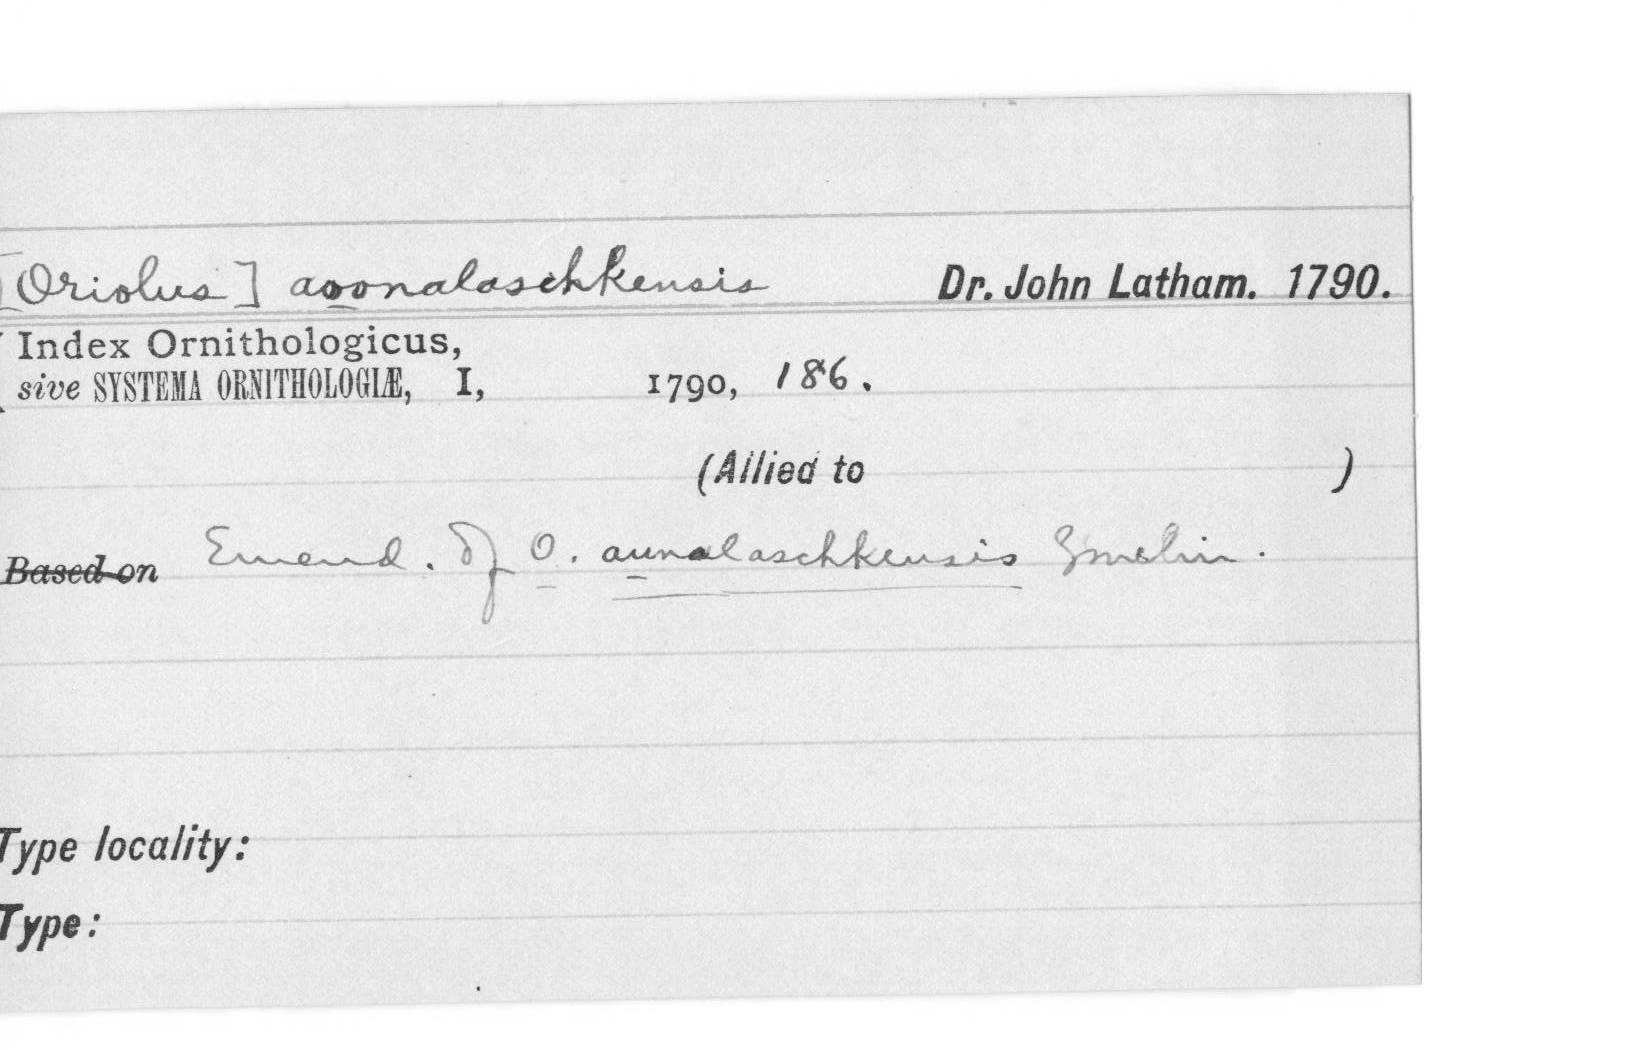 [Oriolus] aoonalaschkensis Dr. John Latham. 1790.
Index Ornithologicus,
sive SYSTEMA ORNITHOLOGIÆ, I, 1790, 186.
(Allied to )
Based on Emend. of O. aunalaschkensis Gmelin.
Type locality:
Type: